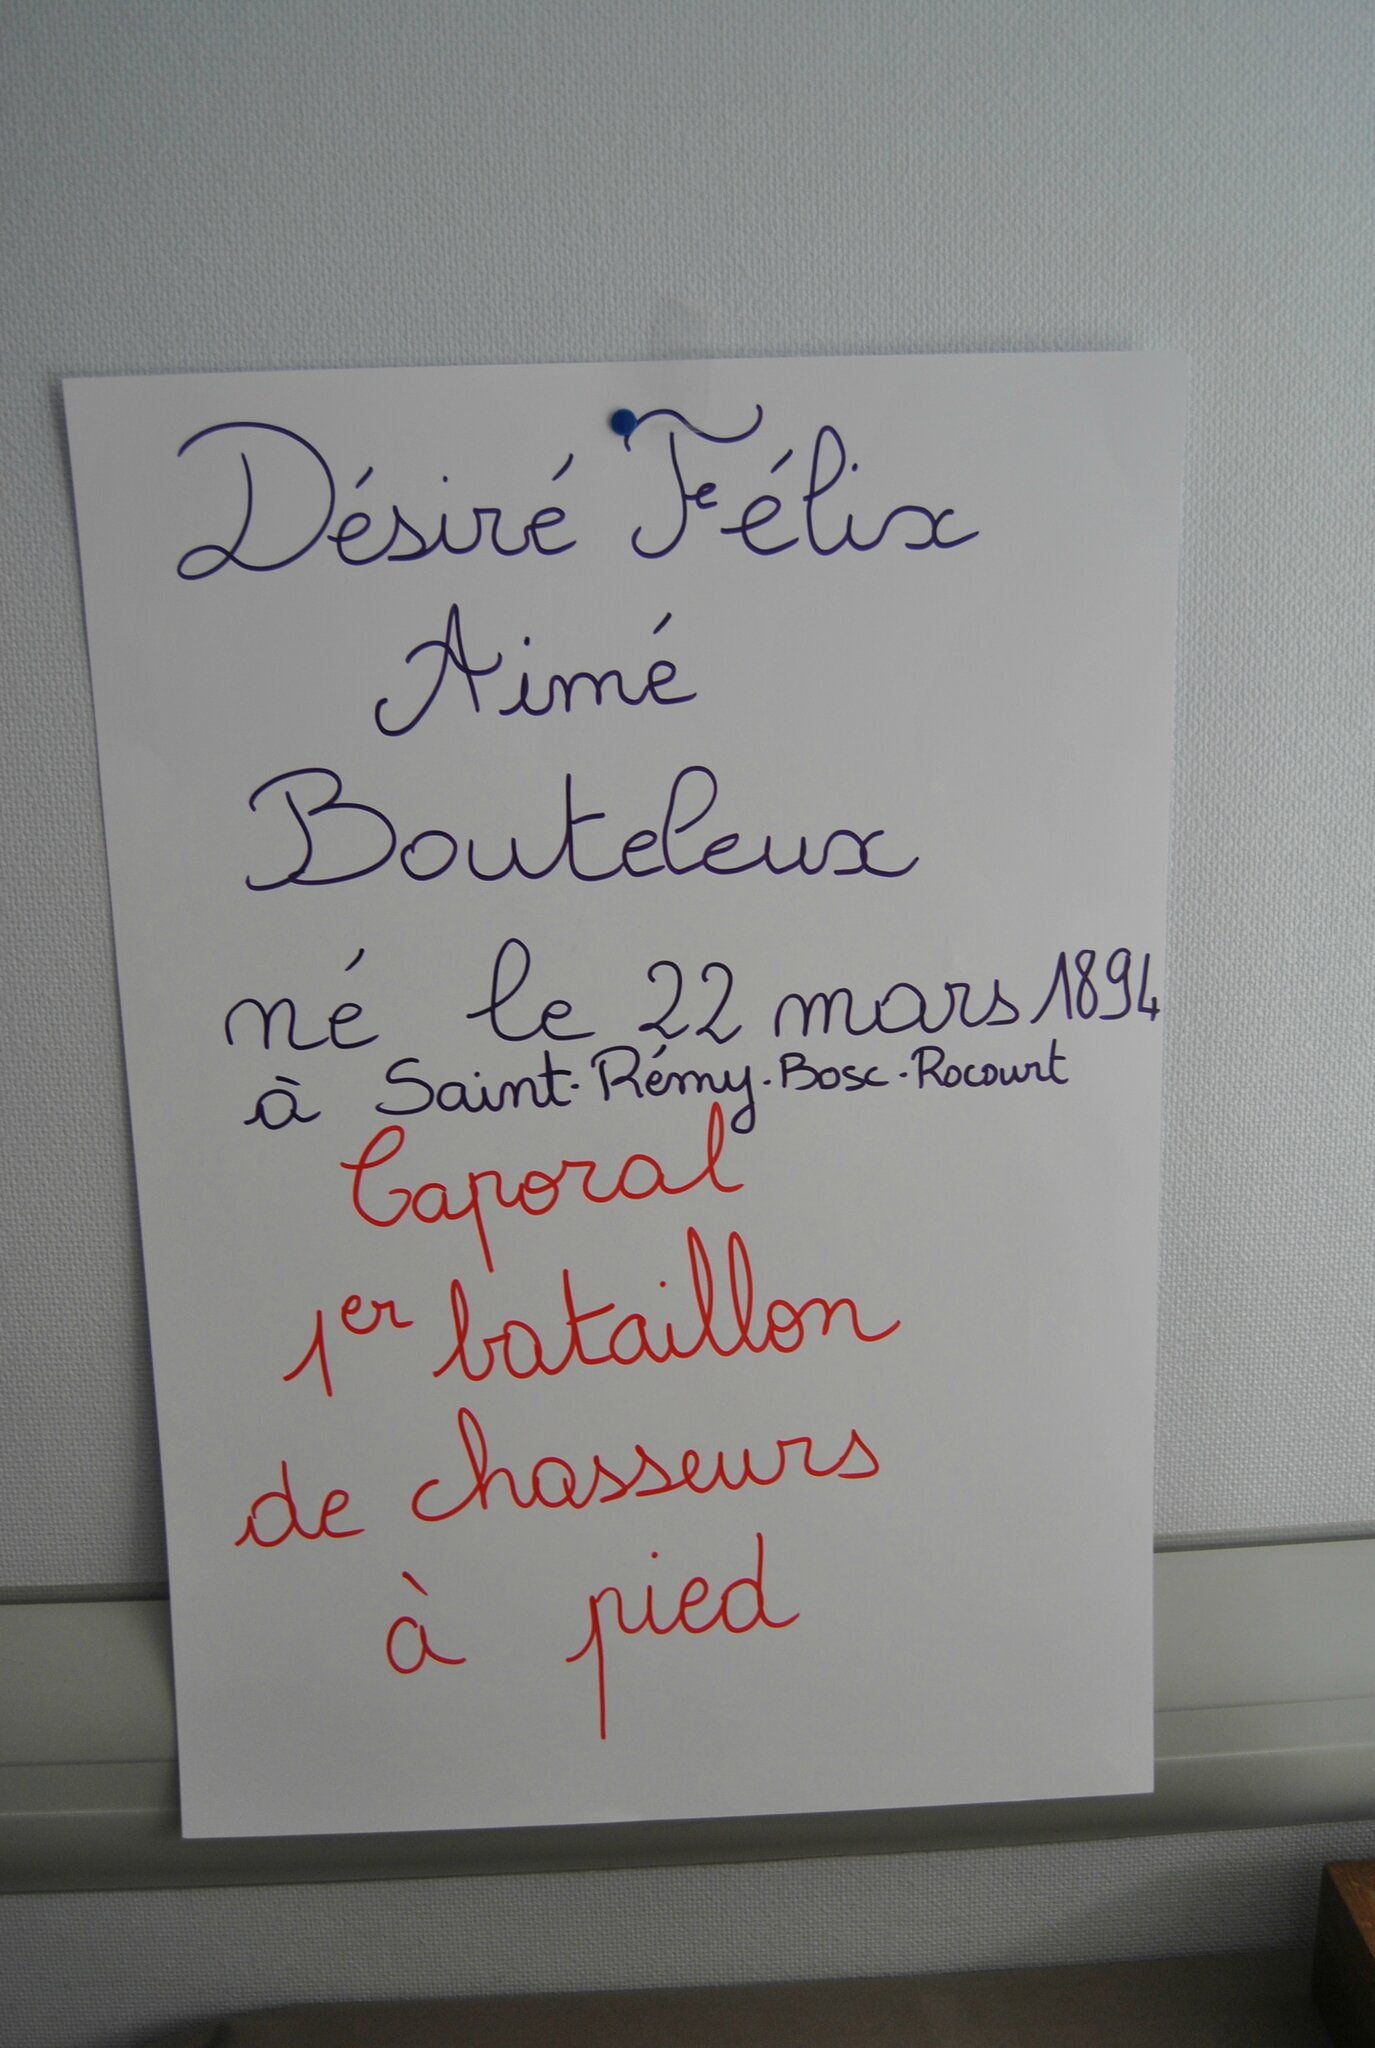 Désiré Félix
Aimé
Bouteleux
né le 22 mars 1894
à Saint-Rémy-Bosc-Rocourt
Caporal
1er bataillon
de chasseurs
à pied